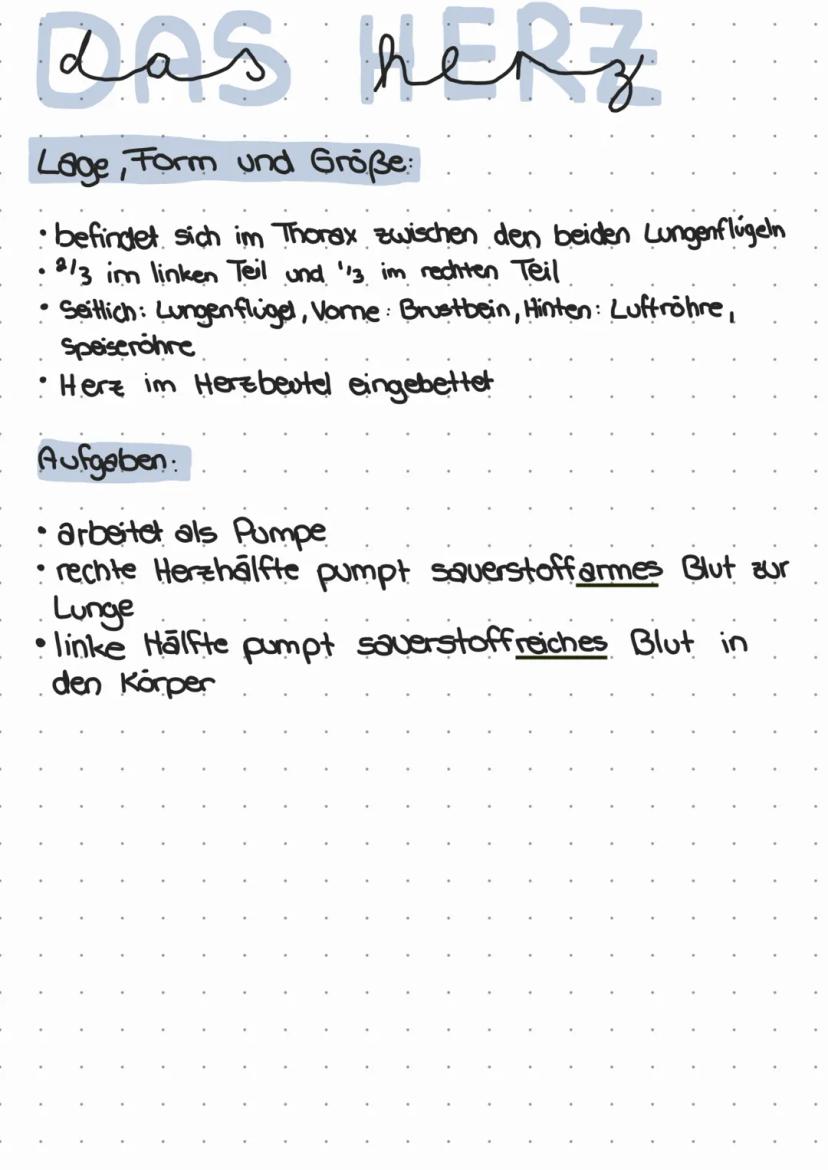 DAS HERZ
das herz
Lage, Form und Größe:
• befindet sich im Thorax zwischen den beiden Lungenflügeln
• 2/3 im linken Teil und 1/3 im rechten Teil
• Seitlich: Lungenflügel, Vorne: Brustbein, Hinten: Luftröhre,
Speiseröhre
• Herz im Herzbeutel eingebettet
Aufgaben:
• arbeitet als Pumpe
• rechte Herzhälfte pumpt sauerstoffarmes Blut zur
Lunge
• linke Hälfte pumpt sauerstoffreiches Blut in
den Körper